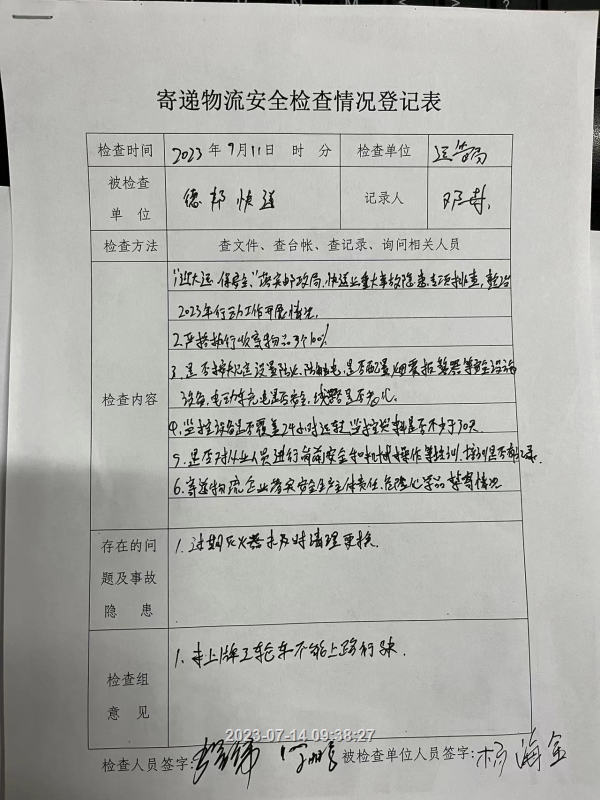 寄递物流安全检查情况登记表
检查时间 2023 年 9月11日 时 分 检查单位 运管局
被检查
单 位 德邦快递 记录人
检查方法 查文件、查台帐、查记录、询问相关人员
"迎大运 保安全"落实邮政局,快递业重大事故隐患专项排查,整治
2023年行动工作开展情况.
2.严格执行收寄物品3个100%
3.是否按规定设置防火、防触电,是否配置烟雾报警器等安全设施
设备,电动车充电是否安全,线路是否老化.
4.监控设备是否覆盖24小时运转,监控资料是否不少于30天
检查内容
5.是否对从业人员进行岗前安全和机械操作等培训,培训是否有记录.
6.寄递物流企业落实安全生产主体责任、危险化学品禁寄情况
存在的问
题及事故
隐 患
1.过期灭火器未及时清理更换.
检查组
意 见
1.未上牌三轮车不能上路行驶.
2023-07-14 09:38:27
检查人员签字: 被检查单位人员签字:杨海金